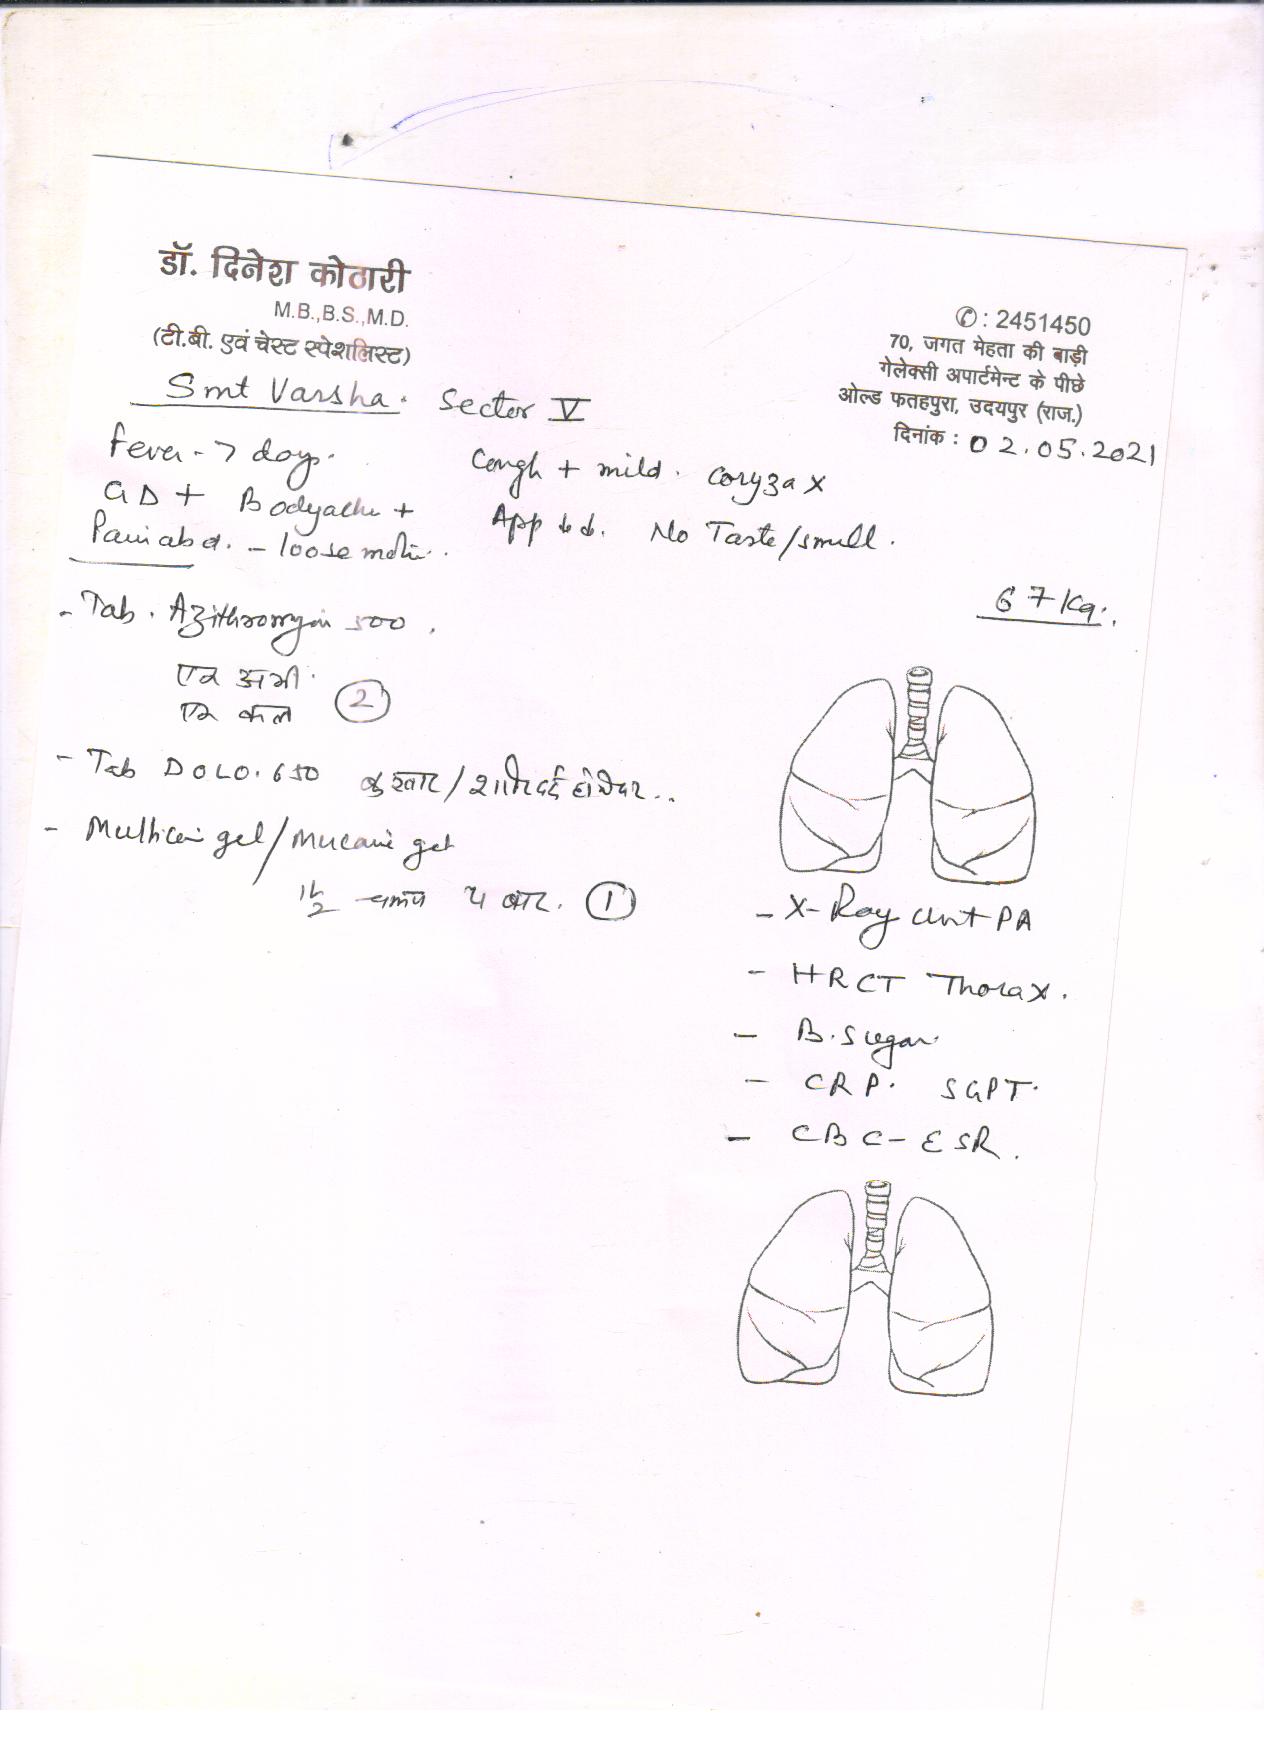 डॉ. दिनेश कोठारी
M.B.,B.S.,M.D.
(टी.बी. एवं चेस्ट स्पेशलिस्ट)
✆ : 2451450
70, जगत मेहता की बाड़ी
गेलेक्सी अपार्टमेन्ट के पीछे
ओल्ड फतहपुरा, उदयपुर (राज.)
दिनांक : 02.05.2021
Smt Varsha. Sector V
Fever - 7 days. Cough + mild. Coryza x
GD + Bodyache + App ↓↓. No Taste/smell.
Pain abd. - loose motion.
67 Kg.
- Tab. Azithromycin 500.
एक अभी
एक कल 2
- Tab DOLO.650 बुखार/
gel/Mucaine gel
1 1/2 चम्मच 4 बार. 1
- X-Ray Chest PA
- HRCT Thorax.
- B. Sugar.
- CRP. SGPT.
- CBC - ESR.